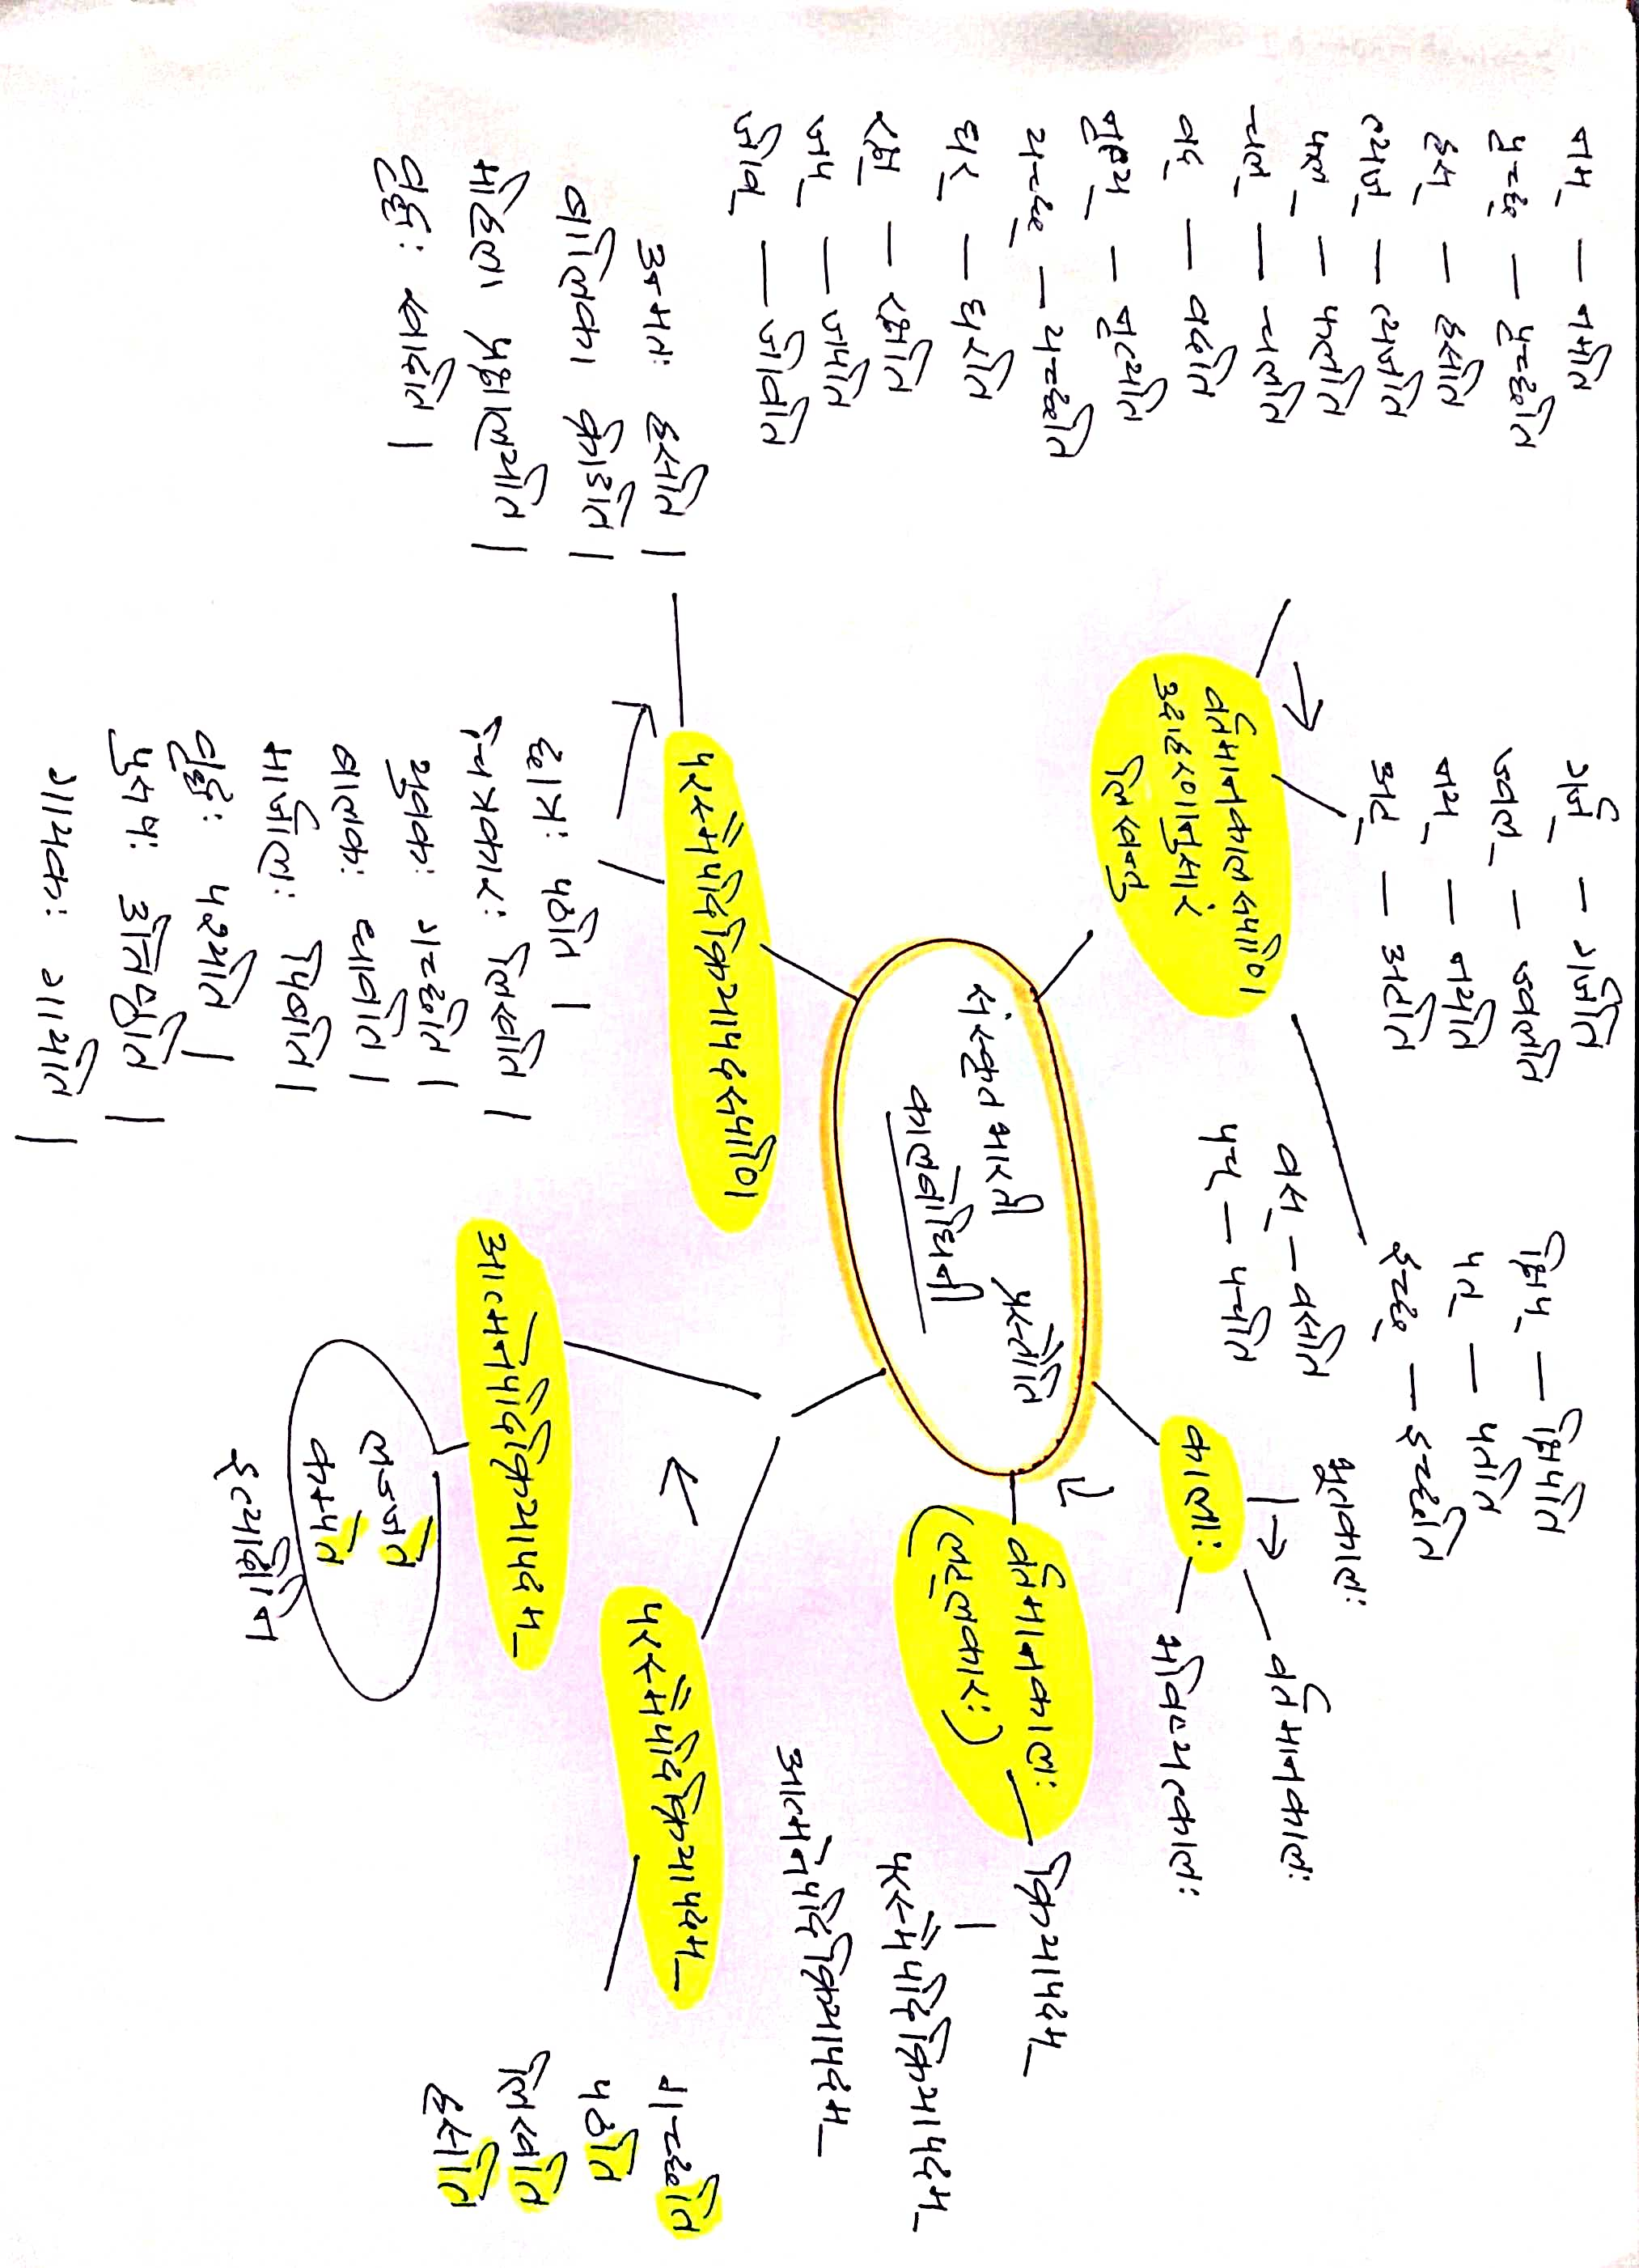 संस्कृत भारती प्रस्तौति
कालबोधिनी
कालाः
वर्तमानकालः
भूतकालः
भविष्यत्कालः
वर्तमानकालः
(लट्लकारः)
क्रियापदम्
परस्मैपदिक्रियापदम्
आत्मनेपदिक्रियापदम्
परस्मैपदिक्रियापदम्
गच्छति
पठति
लिखति
हसति
आत्मनेपदिक्रियापदम्
लज्जते
कम्पते
इत्यादीनि
परस्मैपदिक्रियापदरूपाणि
छात्रः पठति |
चित्रकारः लिखति |
युवकः गच्छति |
बालकः धावति |
मार्जालः पिबति |
वृद्धः पश्यति |
पुरुषः उत्तिष्ठति |
गायकः गायति |
उन्मत्तः हसति |
बालिका क्रीडति |
महिला प्रक्षालयति |
वृद्धः खादति |
वर्तमानकालरूपाणि
उदाहरणानुसारं
लिखतु
नम् — नमति
पृच्छ् — पृच्छति
हस् — हसति
त्यज् — त्यजति
फल् — फलति
चल् — चलति
वद् — वदति
नृत्य् — नृत्यति
यच्छ् — यच्छति
चर् — चरति
रक्ष् — रक्षति
जप् — जपति
जीव् — जीवति
गर्ज् — गर्जति
ज्वल् — ज्वलति
नय् — नयति
अट् — अटति
क्षिप् — क्षिपति
पत् — पतति
इच्छ् — इच्छति
वस् — वसति
पच् — पचति